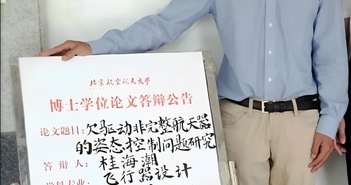 北京航空航天大学
博士学位论文答辩公告
论文题目：欠驱动非完整航天器
的姿态控制问题研究
答辩人：桂海潮
学科专业：飞行器设计